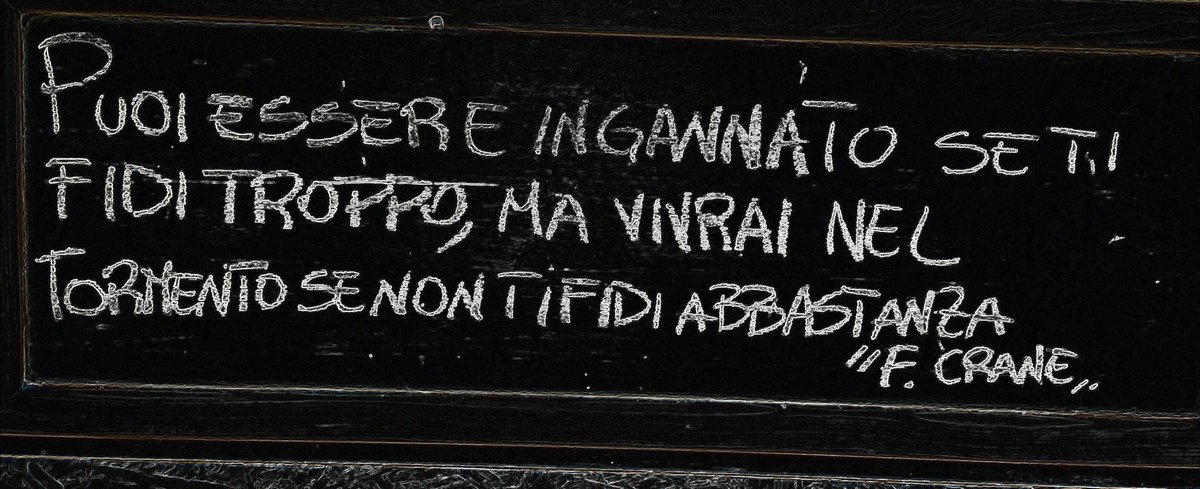 PUOI ESSERE INGANNATO SE TI
FIDI TROPPO, MA VIVRAI NEL
TORMENTO SE NON TI FIDI ABBASTANZA
"F. CRANE"